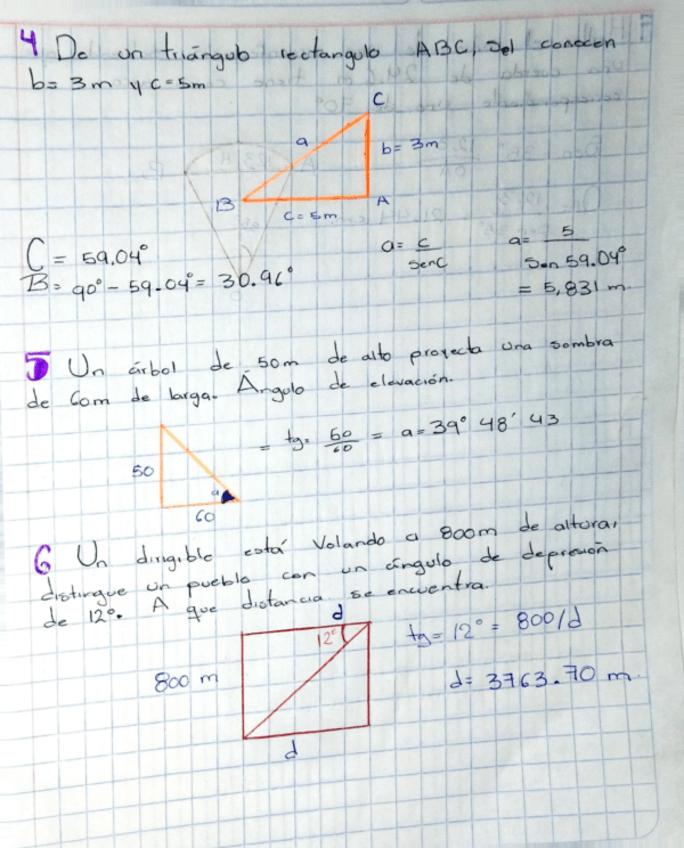 4 De un triángulo rectangulo ABC, se conocen
b= 3m y c=5m
C
a
b= 3m
B
A
c= 5m
C = 59.04°
a= c/senC
a= 5/Sen 59.04°
B= 90° - 59.04° = 30.96°
= 5,831 m.
5 Un árbol de 50m de alto proyecta una sombra
de 60m de larga. Ángulo de elevación.
= tg= 50/60 = a=39° 48' 43
50
a
60
6 Un dirigible está Volando a 800m de altura,
distingue un pueblo con un ángulo de depresión
de 12°. A que distancia se encuentra.
d
12°
tg= 12° = 800/d
800 m
d= 3763.70 m.
d